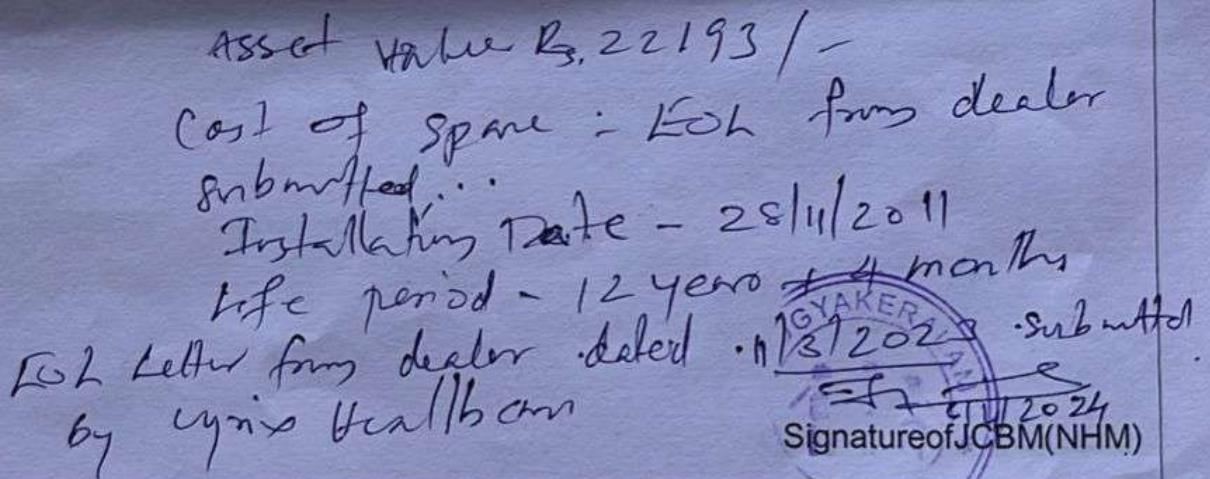 Asset value Rs. 22193/-
Cost of spare : EOL from dealer
submitted...
Installation Date - 28/11/2011
Life period - 12 years + 4 months
EOL Letter from dealer dated 11/3/2023 submitted
by Cyrix Healthcare
GYAKERA
2024
SignatureofJCBM(NHM)